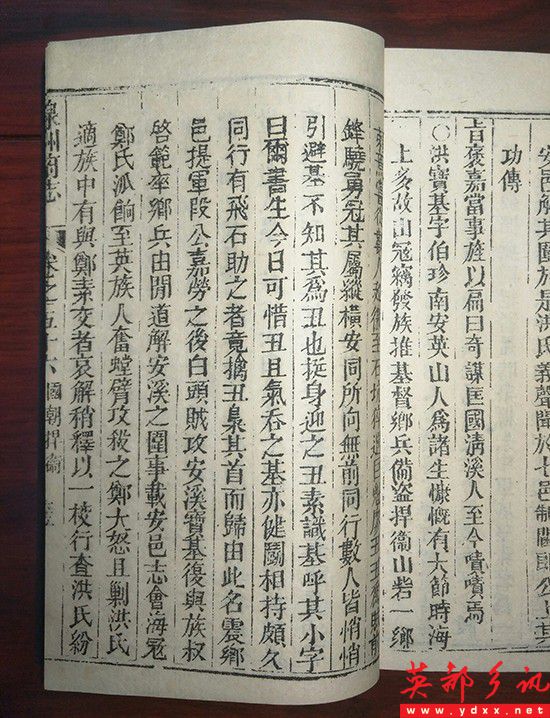 安邑解其圍族是洪氏義聲聞於七邑制
功傳
旨褒嘉當事旌以扁曰奇謀匡國淸溪人至今嘖嘖焉
○洪寶基字伯珍南安英山人爲諸生慷慨有大節時海
上多故山冦竊發族推基督鄉兵備盜捍衞山砦一鄉
鋒驍勇冠其屬縱橫安同所向無前同行數人皆悄悄
引避基不知其爲丑也挺身迎之丑素識基呼其小字
曰爾書生今日可惜丑且氣吞之基亦健鬭相持頗久
同行有飛石助之者竟擒丑梟其首而歸由此名震鄉
邑提軍段公嘉勞之後白頭賊攻安溪寶基復與族叔
啓範率鄉兵由間道解安溪之圍事載安邑志會海冦
鄭氏派餉至英族人奮螳臂攻殺之鄭大怒且剿洪氏
適族中有與鄭素交者哀解稍釋以一校行查洪氏紛
泉州府志 卷之五十六 國朝捍衞
英都乡讯
www.ydxx.net